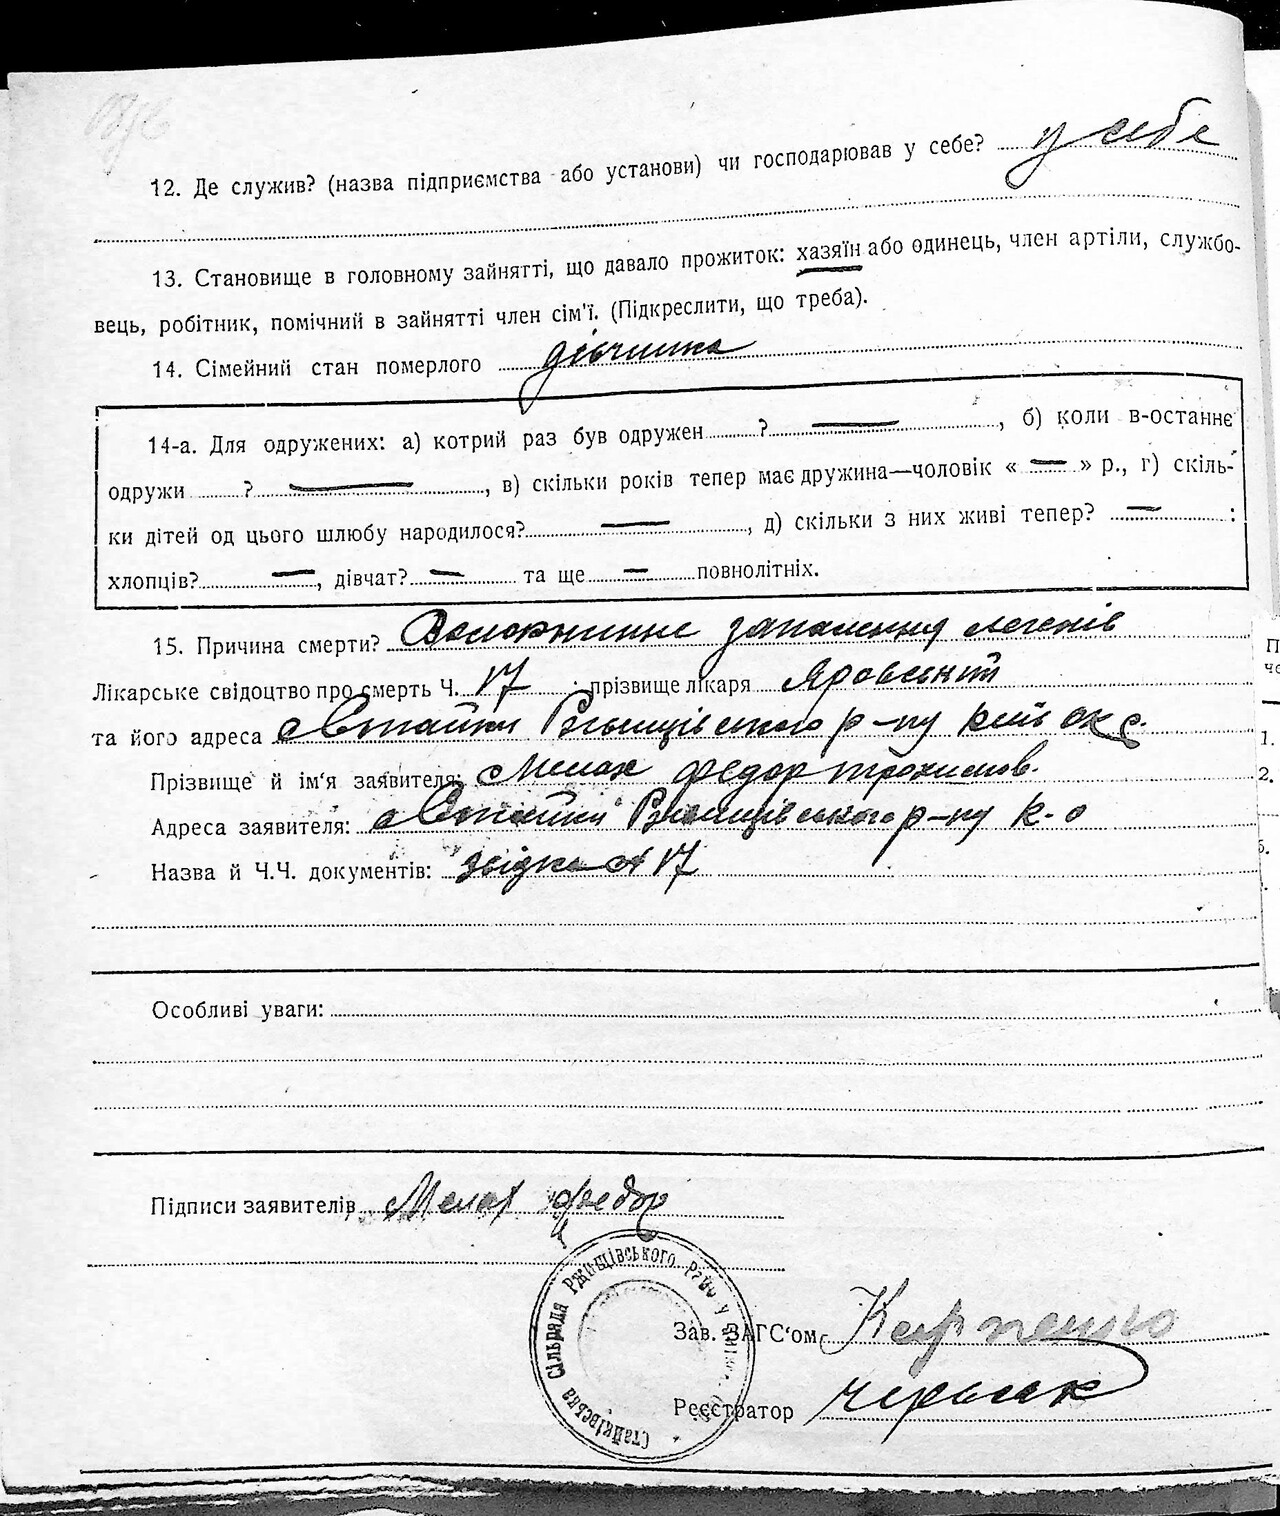 12. Де служив? (назва підприємства або установи) чи господарював у себе? у себе
13. Становище в головному зайнятті, що давало прожиток: хазяїн або одинець, член артіли, службо-
вець, робітник, помічний в зайнятті член сім'ї. (Підкреслити, що треба).
14. Сімейний стан померлого дівчина
14-а. Для одружених: а) котрий раз був одружен ? — , б) коли в-останнє
одружи ? — , в) скільки років тепер має дружина—чоловік « — » р., г) скіль-
ки дітей од цього шлюбу народилося? — , д) скільки з них живі тепер? — :
хлопців? — , дівчат? — та ще — повнолітніх.
15. Причина смерти? запалення легенів
Лікарське свідоцтво про смерть Ч. 17 ; прізвище лікаря Яровський
та його адреса с Стайки Ржищівського р-ну Київ окр.
Прізвище й ім'я заявителя: Мелах Федор
Адреса заявителя: с Стайки Ржищівського р-ну К-о
Назва й Ч.Ч. документів: звідка № 17
Особливі уваги:
Підписи заявителів Мелах Федор
Стайківська Сільрада Ржищівського
Зав. ЗАГС'ом Карпенко
Реєстратор
П
1.
2.